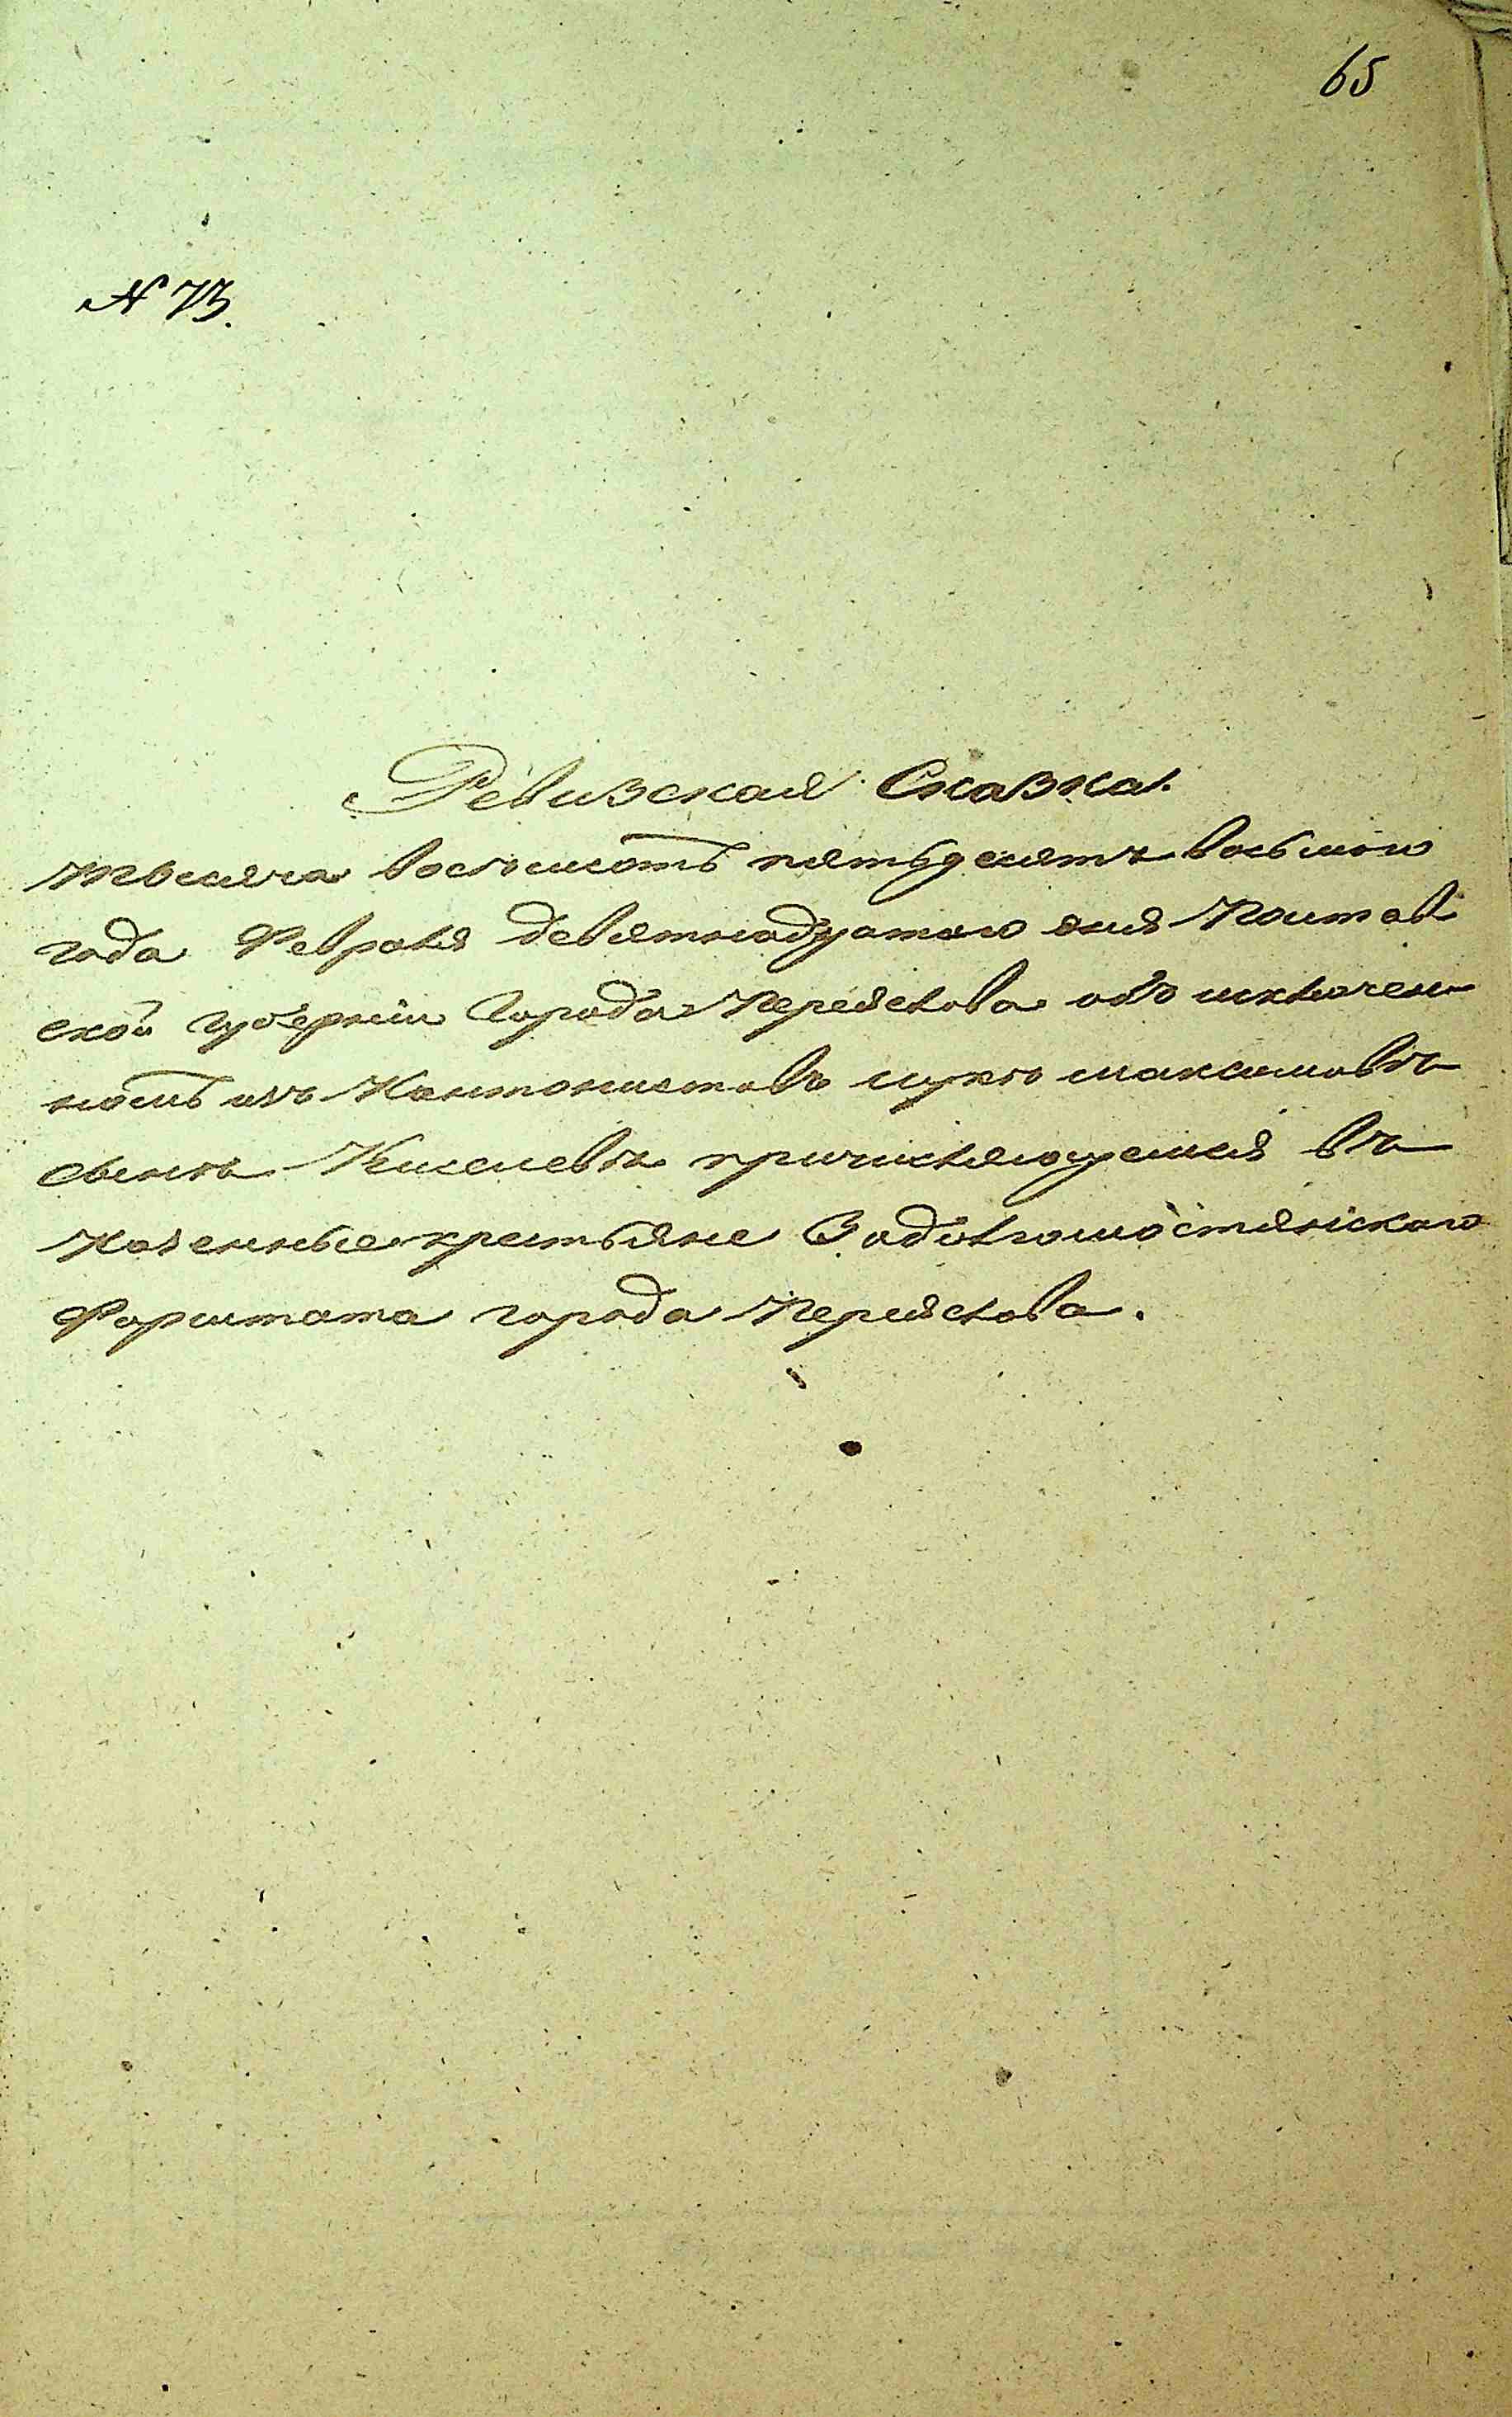 65
№ 73.
Ревизская Сказка.
тысяча восемсотъ пятьдесятъ восьмого
года Февраля девятнадцатого дня Полтав
ской губернии Города Переяслова объ исключен
номъ изъ Кантонистовъ максимовъ
сынъ Киселевъ причисляющемся въ
Казенные крестьяне Задолгомостянского
Форштата города Переяслова.